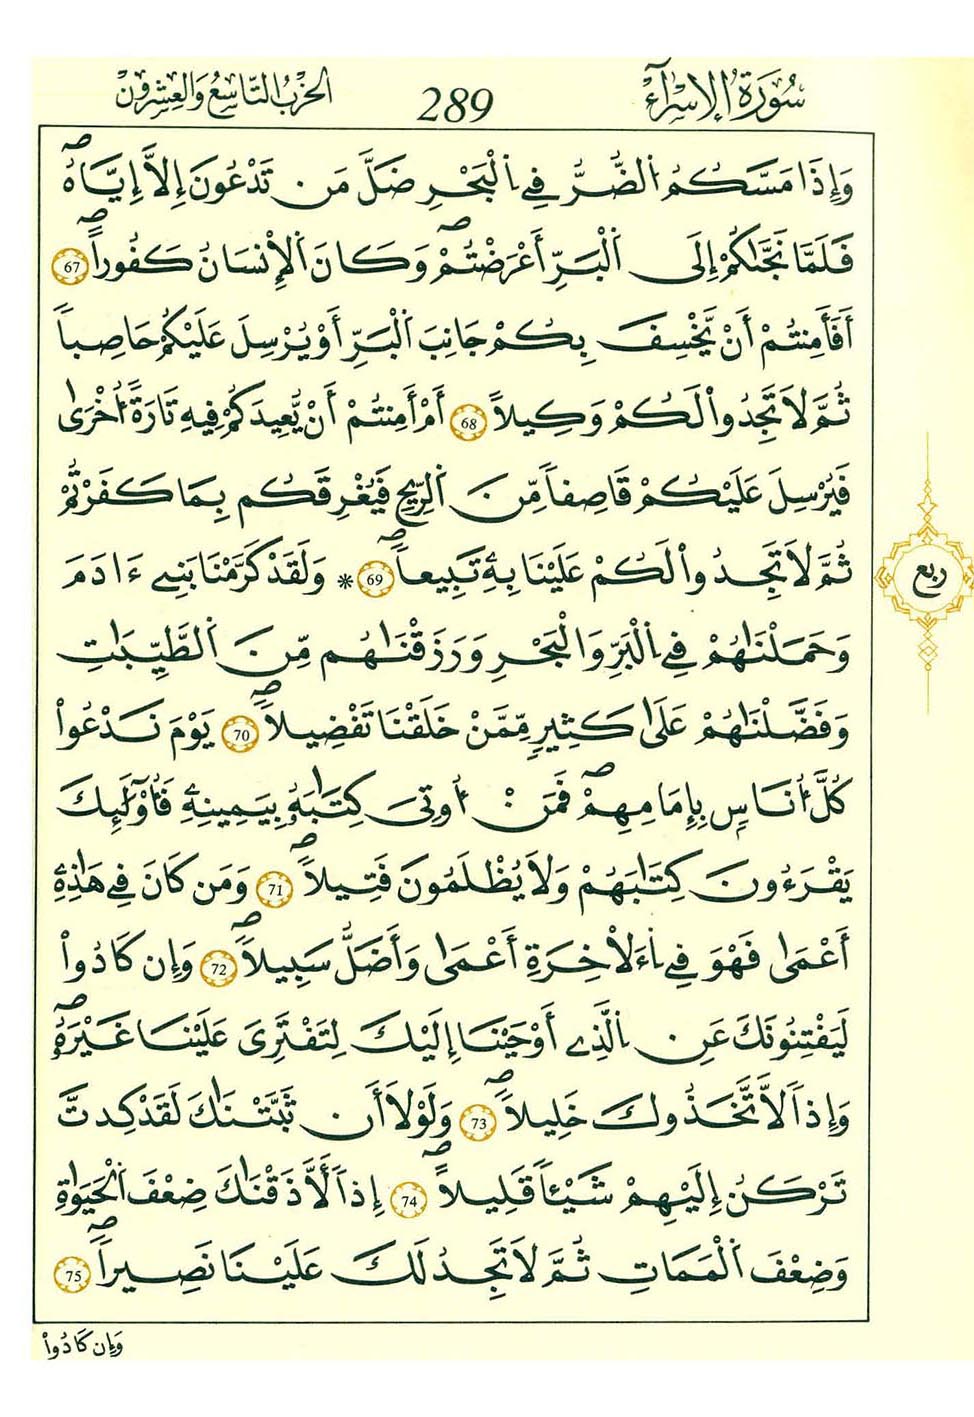 سُورَةُ الإِسْرَآءِ
289
الحِزْبُ التَّاسِعُ وَالعِشْرُونَ
وَإِذَا مَسَّكُمُ الضُّرُّ فِے الْبَحْرِ ضَلَّ مَن تَدْعُونَ إِلَّا إِيَّاهُ
فَلَمَّا نَجَّىٰكُمْ إِلَى الْبَرِّ أَعْرَضْتُمْ وَكَانَ الْإِنسَانُ كَفُوراً 67
أَفَأَمِنتُمْ أَنْ يَّخْسِفَ بِكُمْ جَانِبَ الْبَرِّ أَوْ يُرْسِلَ عَلَيْكُمْ حَاصِباً
ثُمَّ لَا تَجِدُواْ لَكُمْ وَكِيلاً 68 أَمْ أَمِنتُمْ أَنْ يُّعِيدَكُمْ فِيهِ تَارَةً أُخْرَىٰ
فَيُرْسِلَ عَلَيْكُمْ قَاصِفاً مِّنَ الرِّيحِ فَيُغْرِقَكُم بِمَا كَفَرْتُمْ
ثُمَّ لَا تَجِدُواْ لَكُمْ عَلَيْنَا بِهِۦ تَبِيعاً 69 * وَلَقَدْ كَرَّمْنَا بَنِے ءَادَمَ
وَحَمَلْنَٰهُمْ فِے الْبَرِّ وَالْبَحْرِ وَرَزَقْنَٰهُم مِّنَ الطَّيِّبَٰتِ
وَفَضَّلْنَٰهُمْ عَلَىٰ كَثِيرٍ مِّمَّنْ خَلَقْنَا تَفْضِيلاً 70 يَوْمَ نَدْعُواْ
كُلَّ أُنَاسٍ بِإِمَامِهِمْ فَمَنْ أُوتِىَ كِتَٰبَهُۥ بِيَمِينِهِۦ فَأُوْلَٰٓئِكَ
يَقْرَءُونَ كِتَٰبَهُمْ وَلَا يُظْلَمُونَ فَتِيلاً 71 وَمَن كَانَ فِے هَٰذِهِۦ
أَعْمَىٰ فَهْوَ فِے اءَلَاْخِرَةِ أَعْمَىٰ وَأَضَلُّ سَبِيلاً 72 وَإِن كَادُواْ
لَيَفْتِنُونَكَ عَنِ الَّذِے أَوْحَيْنَا إِلَيْكَ لِتَفْتَرِىَ عَلَيْنَا غَيْرَهُۥ
وَإِذاً لَّاتَّخَذُوكَ خَلِيلاً 73 وَلَوْلَا أَن ثَبَّتْنَٰكَ لَقَدْ كِدتَّ
تَرْكَنُ إِلَيْهِمْ شَيْـٔاً قَلِيلاً 74 إِذاً لَّأَذَقْنَٰكَ ضِعْفَ الْحَيَوٰةِ
وَضِعْفَ الْمَمَاتِ ثُمَّ لَا تَجِدُ لَكَ عَلَيْنَا نَصِيراً 75
ربع
وَإِن كَادُواْ